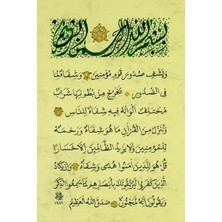 بسم الله الرحمن الرحيم
ويشف صدور قوم مؤمنين وشفاء لما
في الصدور يخرج من بطونها شراب
مختلف ألوانه فيه شفاء للناس
وننزل من القرآن ما هو شفاء ورحمة
للمؤمنين ولا يزيد الظالمين إلا خسارا
قل هو للذين آمنوا هدى وشفاء وإن يكاد
الذين كفروا ليزلقونك بأبصارهم لما سمعوا الذكر
ويقولون إنه لمجنون صدق الله العظيم